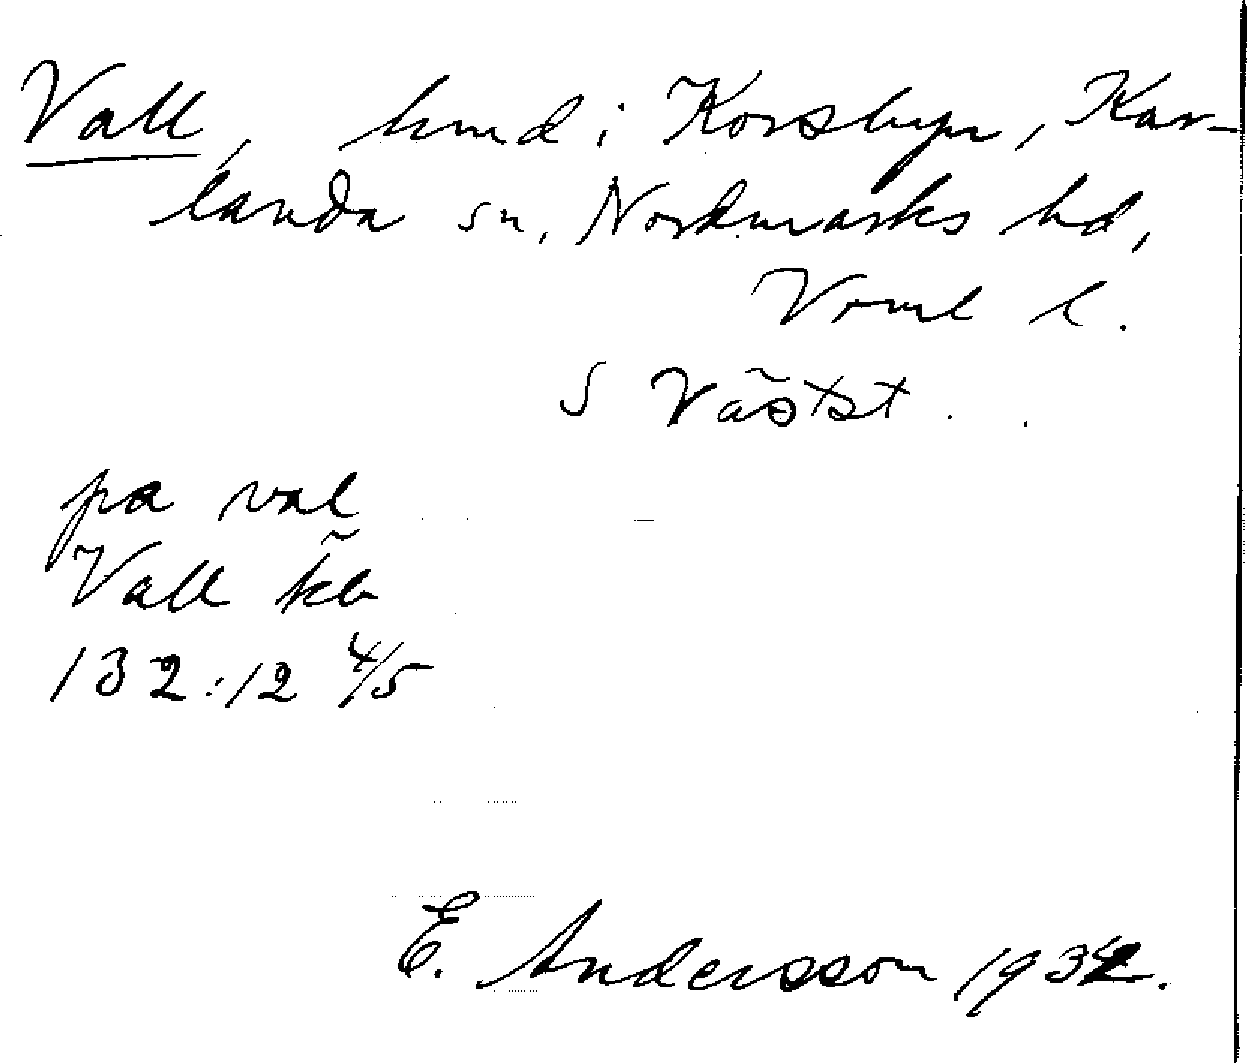 Vall, hmd i Korsbyn, Kar-
landa sn, Nordmarks hd,
Vrml l.
S Västst.
pa val
Vall kb
132:12 4/5
E. Andersson 1932.